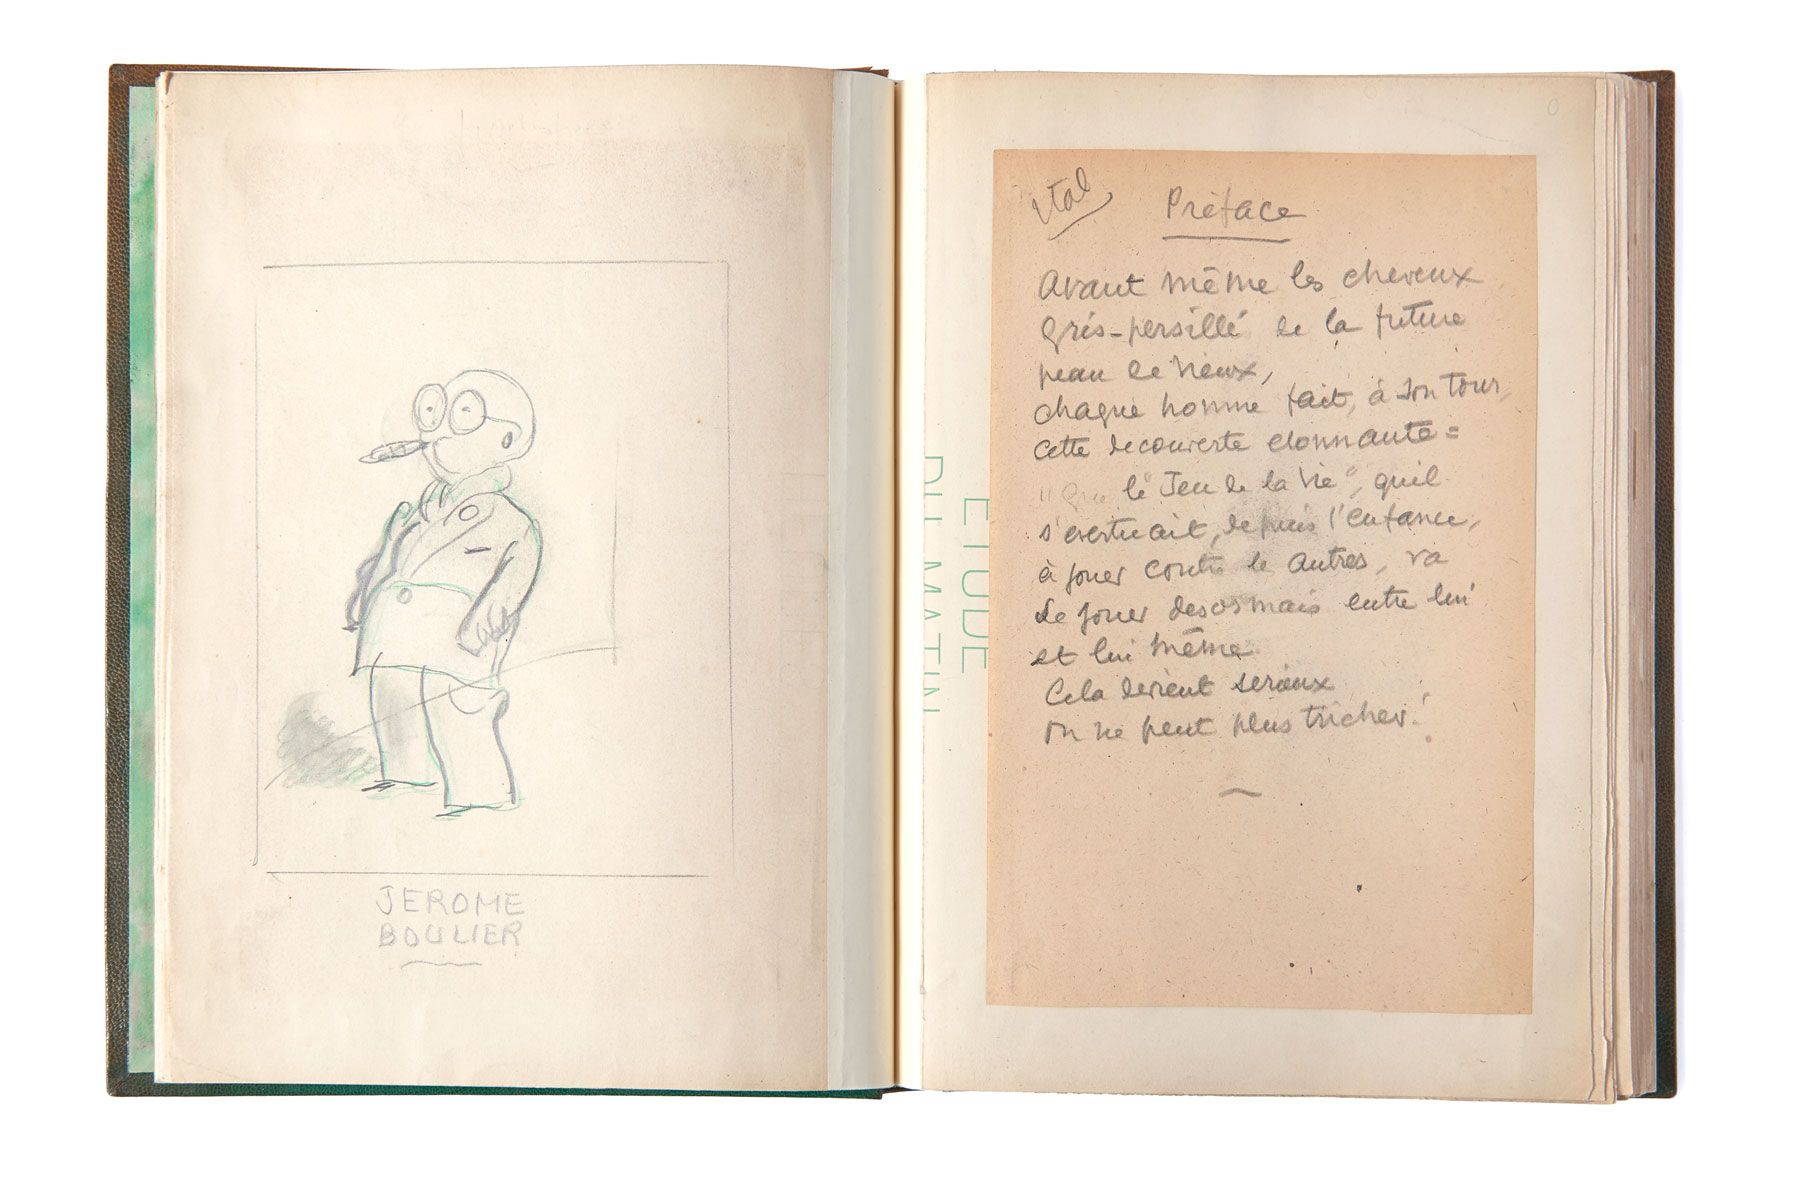 JEROME
BOULIER
ETUDE
DU MATIN
ital
Préface
Avant même les cheveux
gris-persillé de la future
peau de vieux,
chaque homme fait, à son tour,
cette decouverte etonnante =
"Que le "Jeu de la Vie", qu'il
s'evertuait, depuis l'enfance,
à jouer contre les Autres, va
se jouer desormais entre lui
et lui même
Cela devient serieux
on ne peut plus tricher!
0